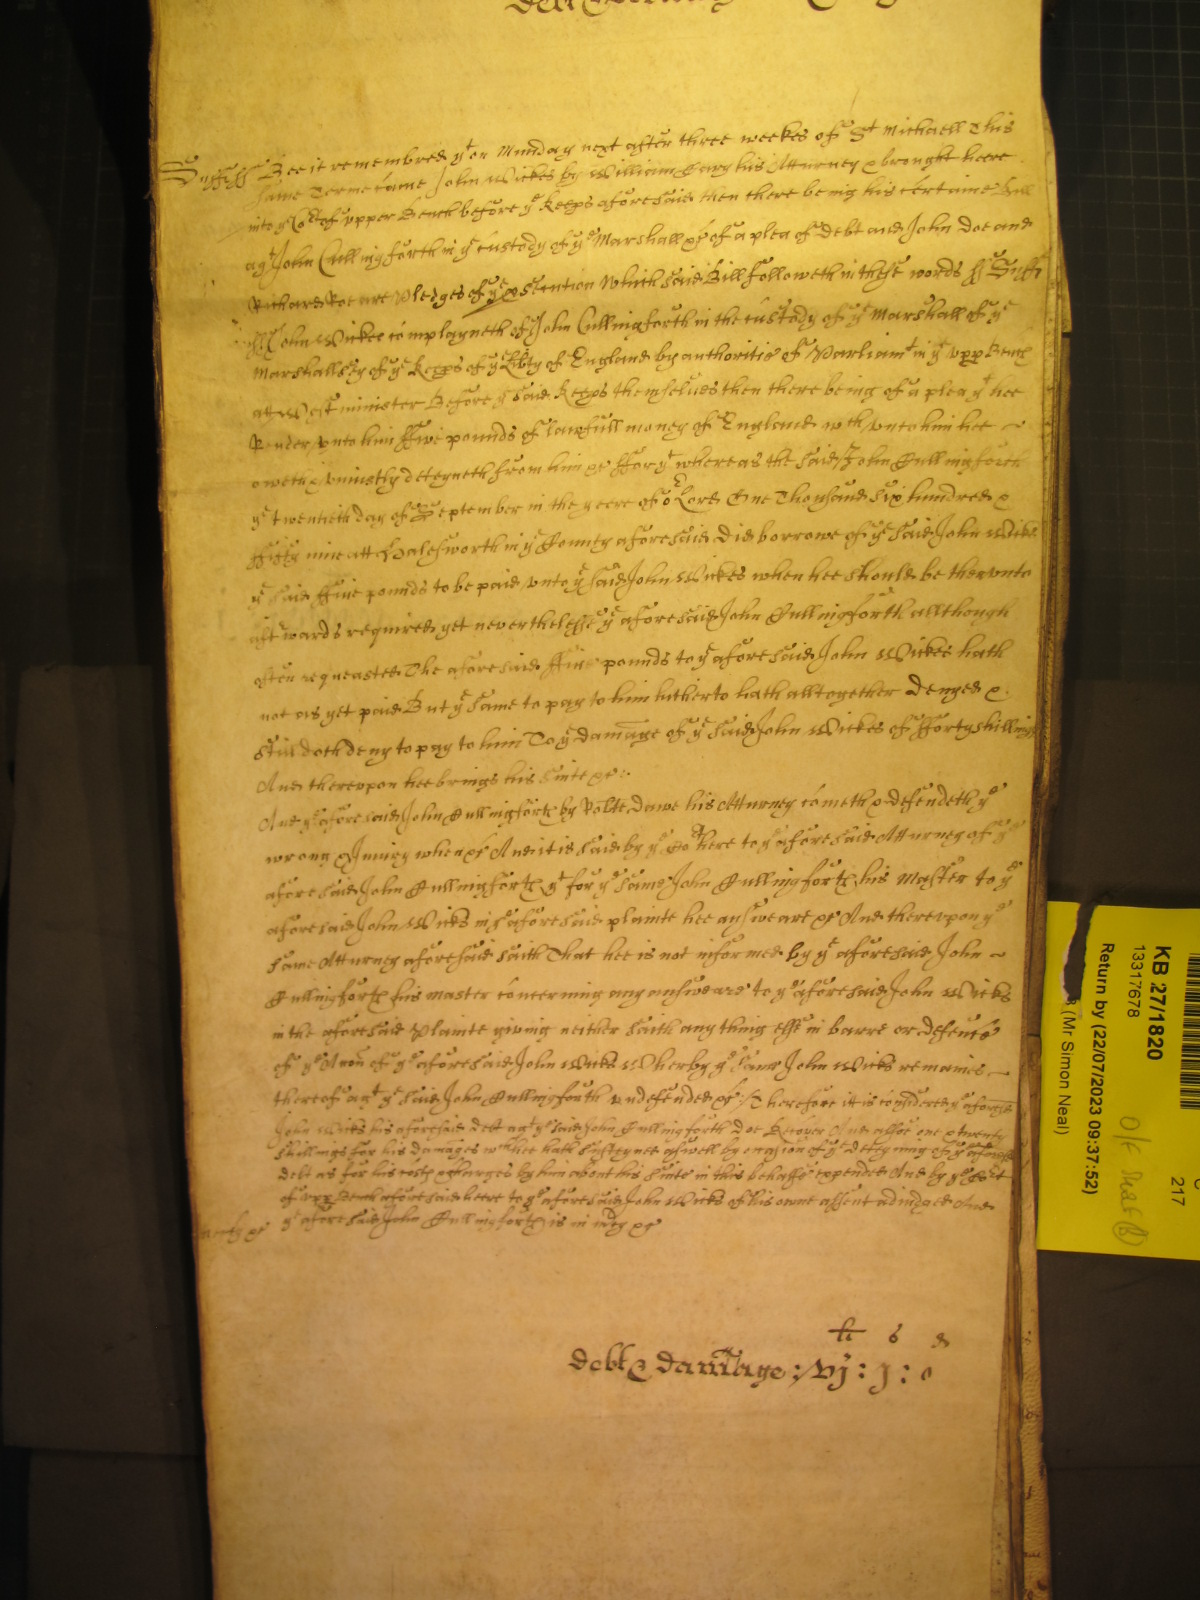 Suff ss Bee it remembred yt on Munday next after three weekes of St Michaell This
same Terme came John Wickes by William his Atturney & brought heere
into ye Cort of vpper Bench before ye Keeps aforesaid then there being his certaine Bill
agt John Cullingforth in ye custody of ye Marshall &c of a plea of debt and John Doe and
Richard Roe are Pledges of ye p'secution Which said Bill followeth in these words ss Suff
ss John Wickes complayneth of John Cullingforth in the custody of ye Marshall of ye
Marshallsey of ye Keeps of ye Libty of England by authoritie of Parliamt in ye vpp Bench
att Westminister Before ye said Keeps themselues then there being of a plea yt hee
Render vnto him ffive pounds of lawfull money of England wch vnto him hee
oweth & vniustly deteyneth from him &c ffor yt whereas the said John Cullingforth
ye twentieth day of September in the yeere of or Lord One Thousand six hundred &
ffifty nine att Halesworth in ye County aforesaid did borrowe of ye said John Wickes
ye said ffiue pounds to be paid vnto ye said John Wickes when hee should be thervnto
aftwards required yet neverthelesse ye aforesaid John Cullingforth allthough
often requeasted The aforesaid ffiue pounds to ye aforesaid John Wickes hath
not as yet paid But ye same to pay to him hitherto hath alltogether denyed &
still doth deny to pay to him To ye damage of ye said John Wickes of ffortyshillings
And therevpon hee brings his suite &c
And ye aforesaid John Cullingforth by Dawe his Atturney cometh & defendeth ye
wrong & Iniury when &c And it is said by ye Cort here to ye aforesaid Atturney of ye
aforesaid John Cullingforth yt for ye same John Cullingforth his Master to ye
aforesaid John Wicks in ye aforesaid plainte hee answeare &c And therevpon ye
same Atturney aforesaid saith That hee is not informed by ye aforesaid John
Cullingforth his master concerning any answeare to ye aforesaid John Wicks
in the aforesaid Plainte giving neither saith any thing else in barre or defence
of ye Accon of ye aforesaid John Wicks Wherby ye same John Wicks remaines
thereof agt ye said John Cullingforth vndefended &c Therefore it is considered yt ye aforesaid
John Wicks his aforesaid debt agt ye said John Cullingforth doe Recover And allsoe one & twenty
shillings for his damages wch hee hath susteynee aswell by occasion of ye deteyning of ye aforesaid
debt as for his costs & charges by him about his suite in this behalfe expended And by ye Cort
of vpp Bench aforesaid heere to ye aforesaid John Wicks of his owne assent adiudged And
ye aforesaid John Cullingforth is in mcy &c
mercy &c
li s d
debt & damage : vj : j : 0
KB 27/1820
13317678
217
Return by (22/07/2023 09:37:52)
(Mr Simon Neal)